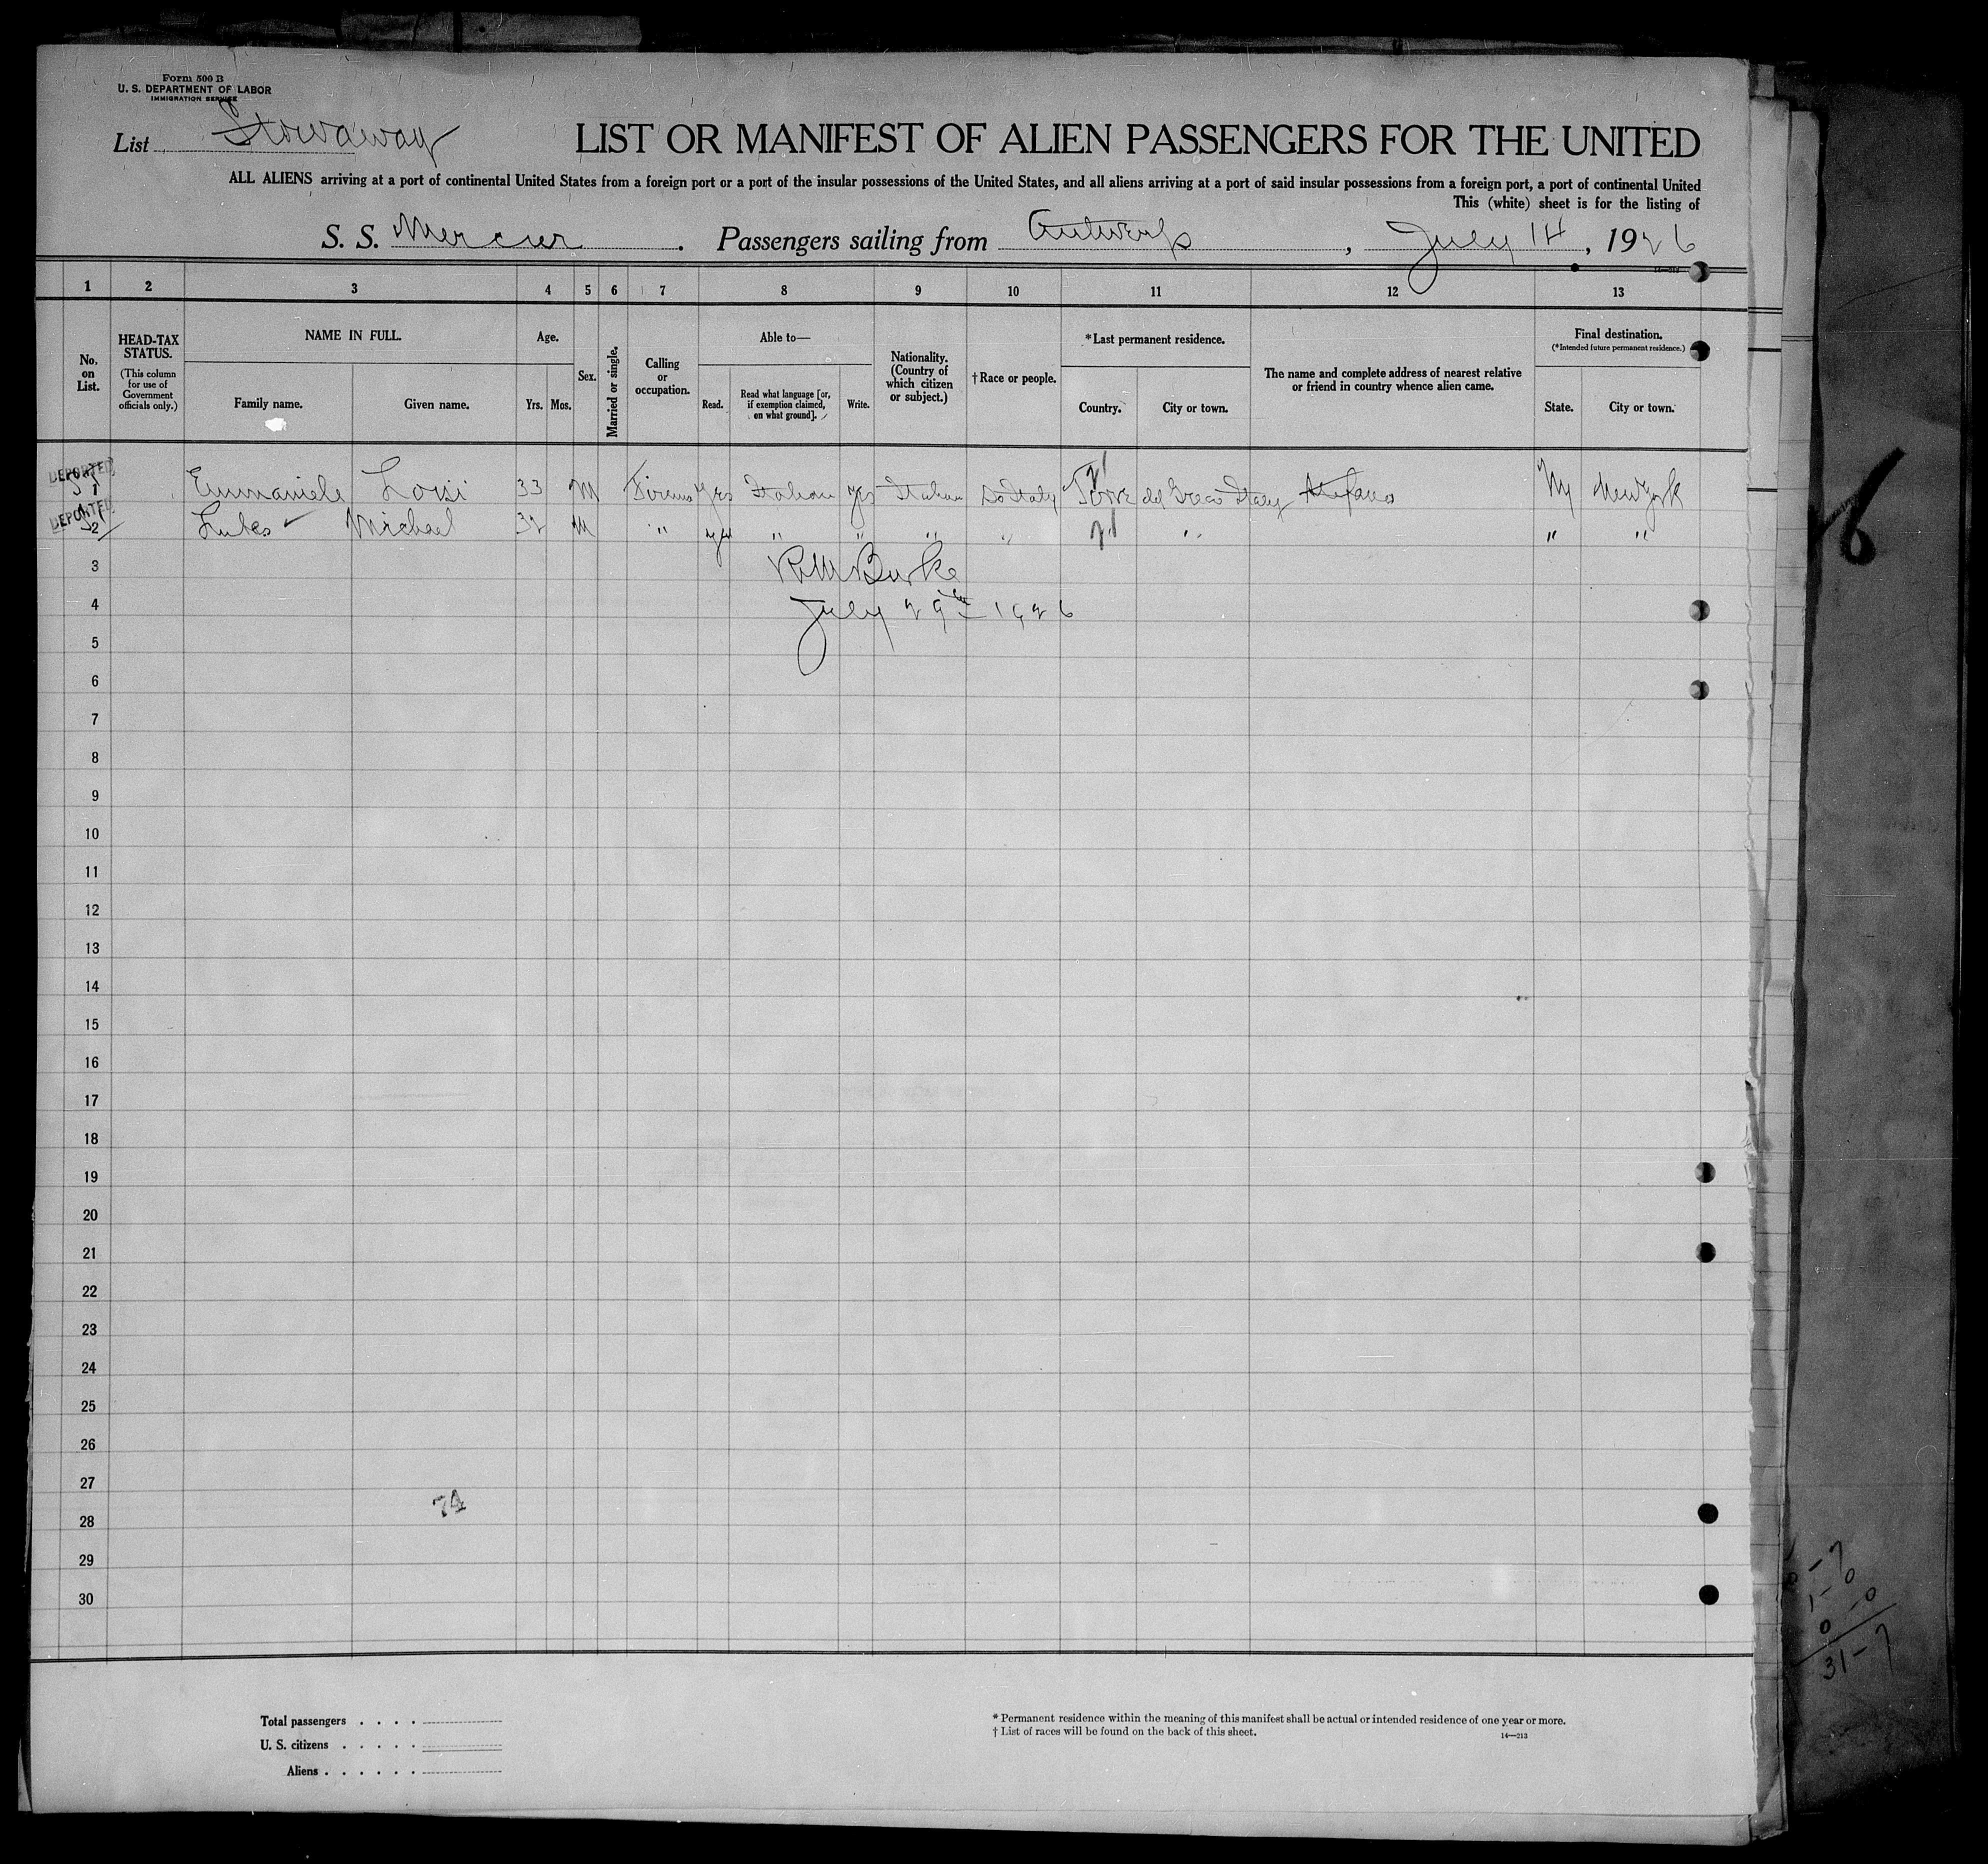 Form 500 B
U. S. DEPARTMENT OF LABOR
IMMIGRATION SERVICE
List Stowaway
LIST OR MANIFEST OF ALIEN PASSENGERS FOR THE UNITED
ALL ALIENS arriving at a port of continental United States from a foreign port or a port of the insular possessions of the United States, and all aliens arriving at a port of said insular possessions from a foreign port, a port of continental United
This (white) sheet is for the listing of
S. S. Mercier . Passengers sailing from Antwerp , July 14 , 1926
14—213
1 2 3 4 5 6 7 8 9 10 11 12 13
No. on List.
HEAD-TAX STATUS.
(This column for use of Government officials only.)
NAME IN FULL.
Family name. Given name.
Age.
Yrs. Mos.
Sex.
Married or single.
Calling or occupation.
Able to—
Read. Read what language [or, if exemption claimed, on what ground]. Write.
Nationality. (Country of which citizen or subject.)
† Race or people.
* Last permanent residence.
Country. City or town.
The name and complete address of nearest relative or friend in country whence alien came.
Final destination.
(*Intended future permanent residence.)
State. City or town.
DEPORTED
1 Emmaniele Loisi 33 M Fireman Yes Italian yes Italian So Italy Torre del Greco Italy NY New York
DEPORTED
2 Lubes Michael 32 M " yes " " " " " " "
3 RM Burke
4 July 29th 1926
5
6
7
8
9
10
11
12
13
14
15
16
17
18
19
20
21
22
23
24
25
26
27
74
28
29
30
6
31-7
Total passengers . . . .
U. S. citizens . . . . .
Aliens . . . . . .
* Permanent residence within the meaning of this manifest shall be actual or intended residence of one year or more.
† List of races will be found on the back of this sheet.
14—213